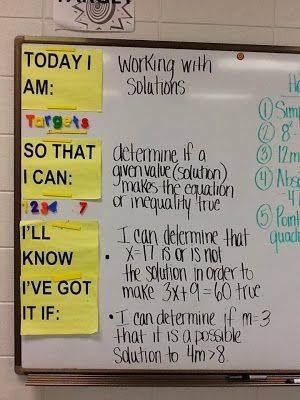 TARGET
TODAY I
AM:
Working with
Solutions
Targets
SO THAT
I CAN:
determine if a
given value (solution)
makes the equation
or inequality true
1234 7
I'LL
KNOW
I'VE GOT
IT IF:
• I can determine that
x=17 is or is not
the solution in order to
make 3x+9=60 true
• I can determine if m=3
that it is a possible
solution to 4m>8.
① Simp
② 8²
③ 12m
④ Abso
⑤ Point
quad